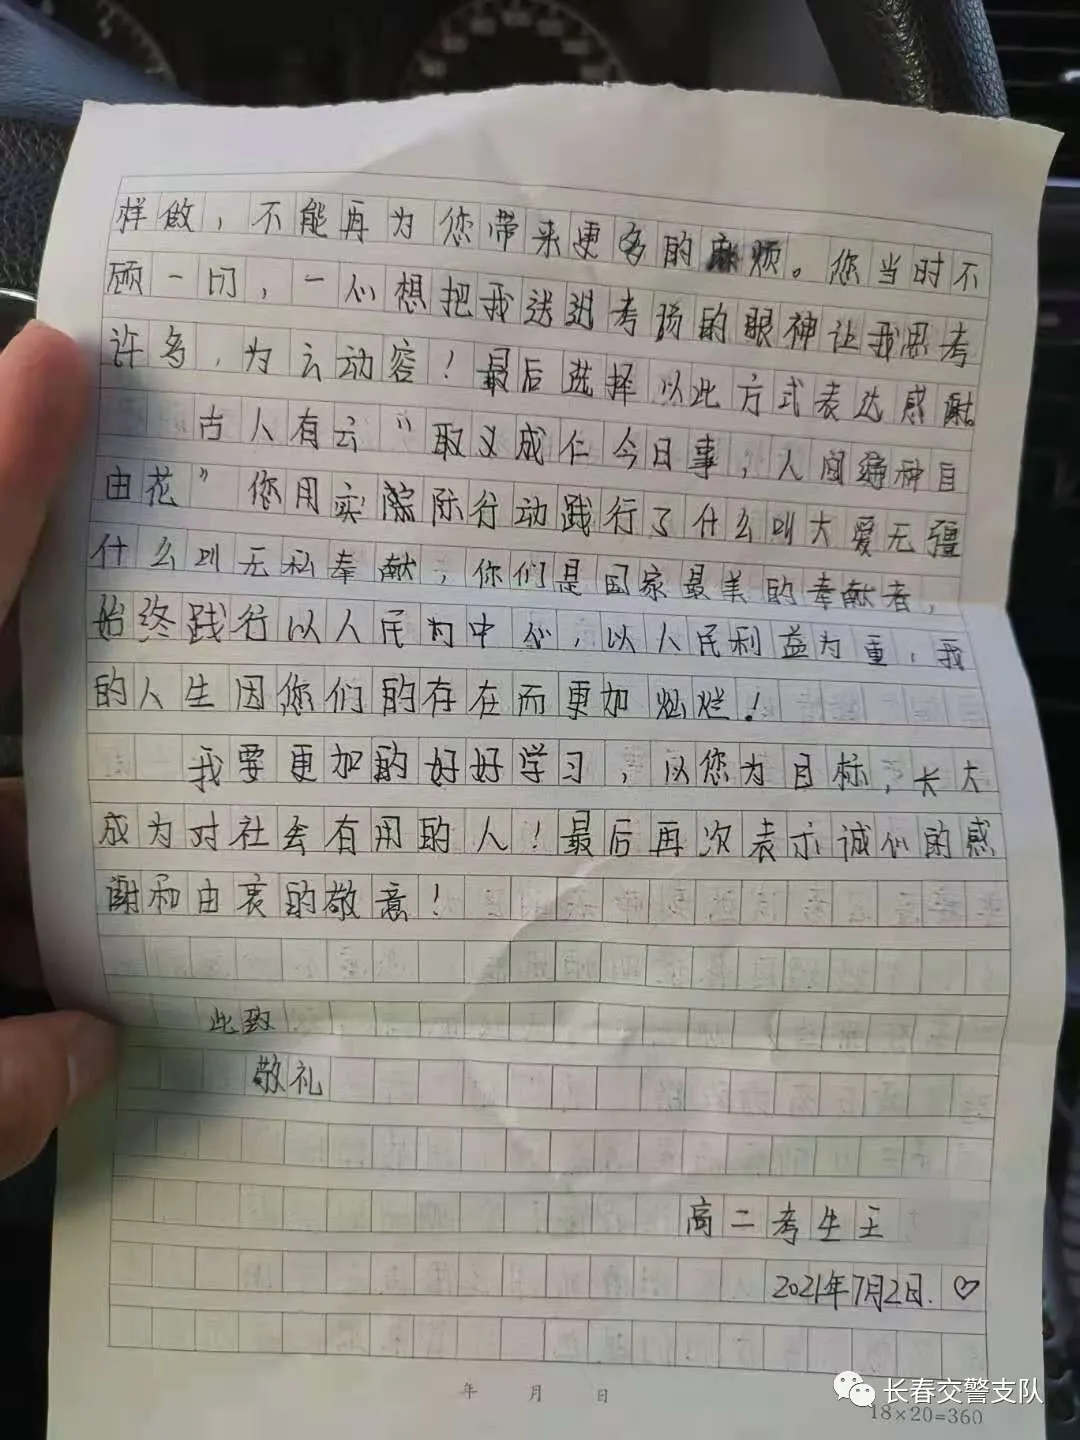 样做，不能再为您带来更多的麻烦。您当时不
顾一切，一心想把我送进考场的眼神让我思考
许多，为之动容！最后选择以此方式表达感谢。
古人有云“取义成仁今日事，人间遍种自
由花”您用实际行动践行了什么叫大爱无疆
什么叫无私奉献，你们是国家最美的奉献者，
始终践行以人民为中心，以人民利益为重，我
的人生因您们的存在而更加灿烂！
我要更加的好好学习，以您为目标，长大
成为对社会有用的人！最后再次表示诚心的感
谢和由衷的敬意！
此致
敬礼
高二考生王
2021年7月2日.♡
年 月 日
长春交警支队
18×20=360